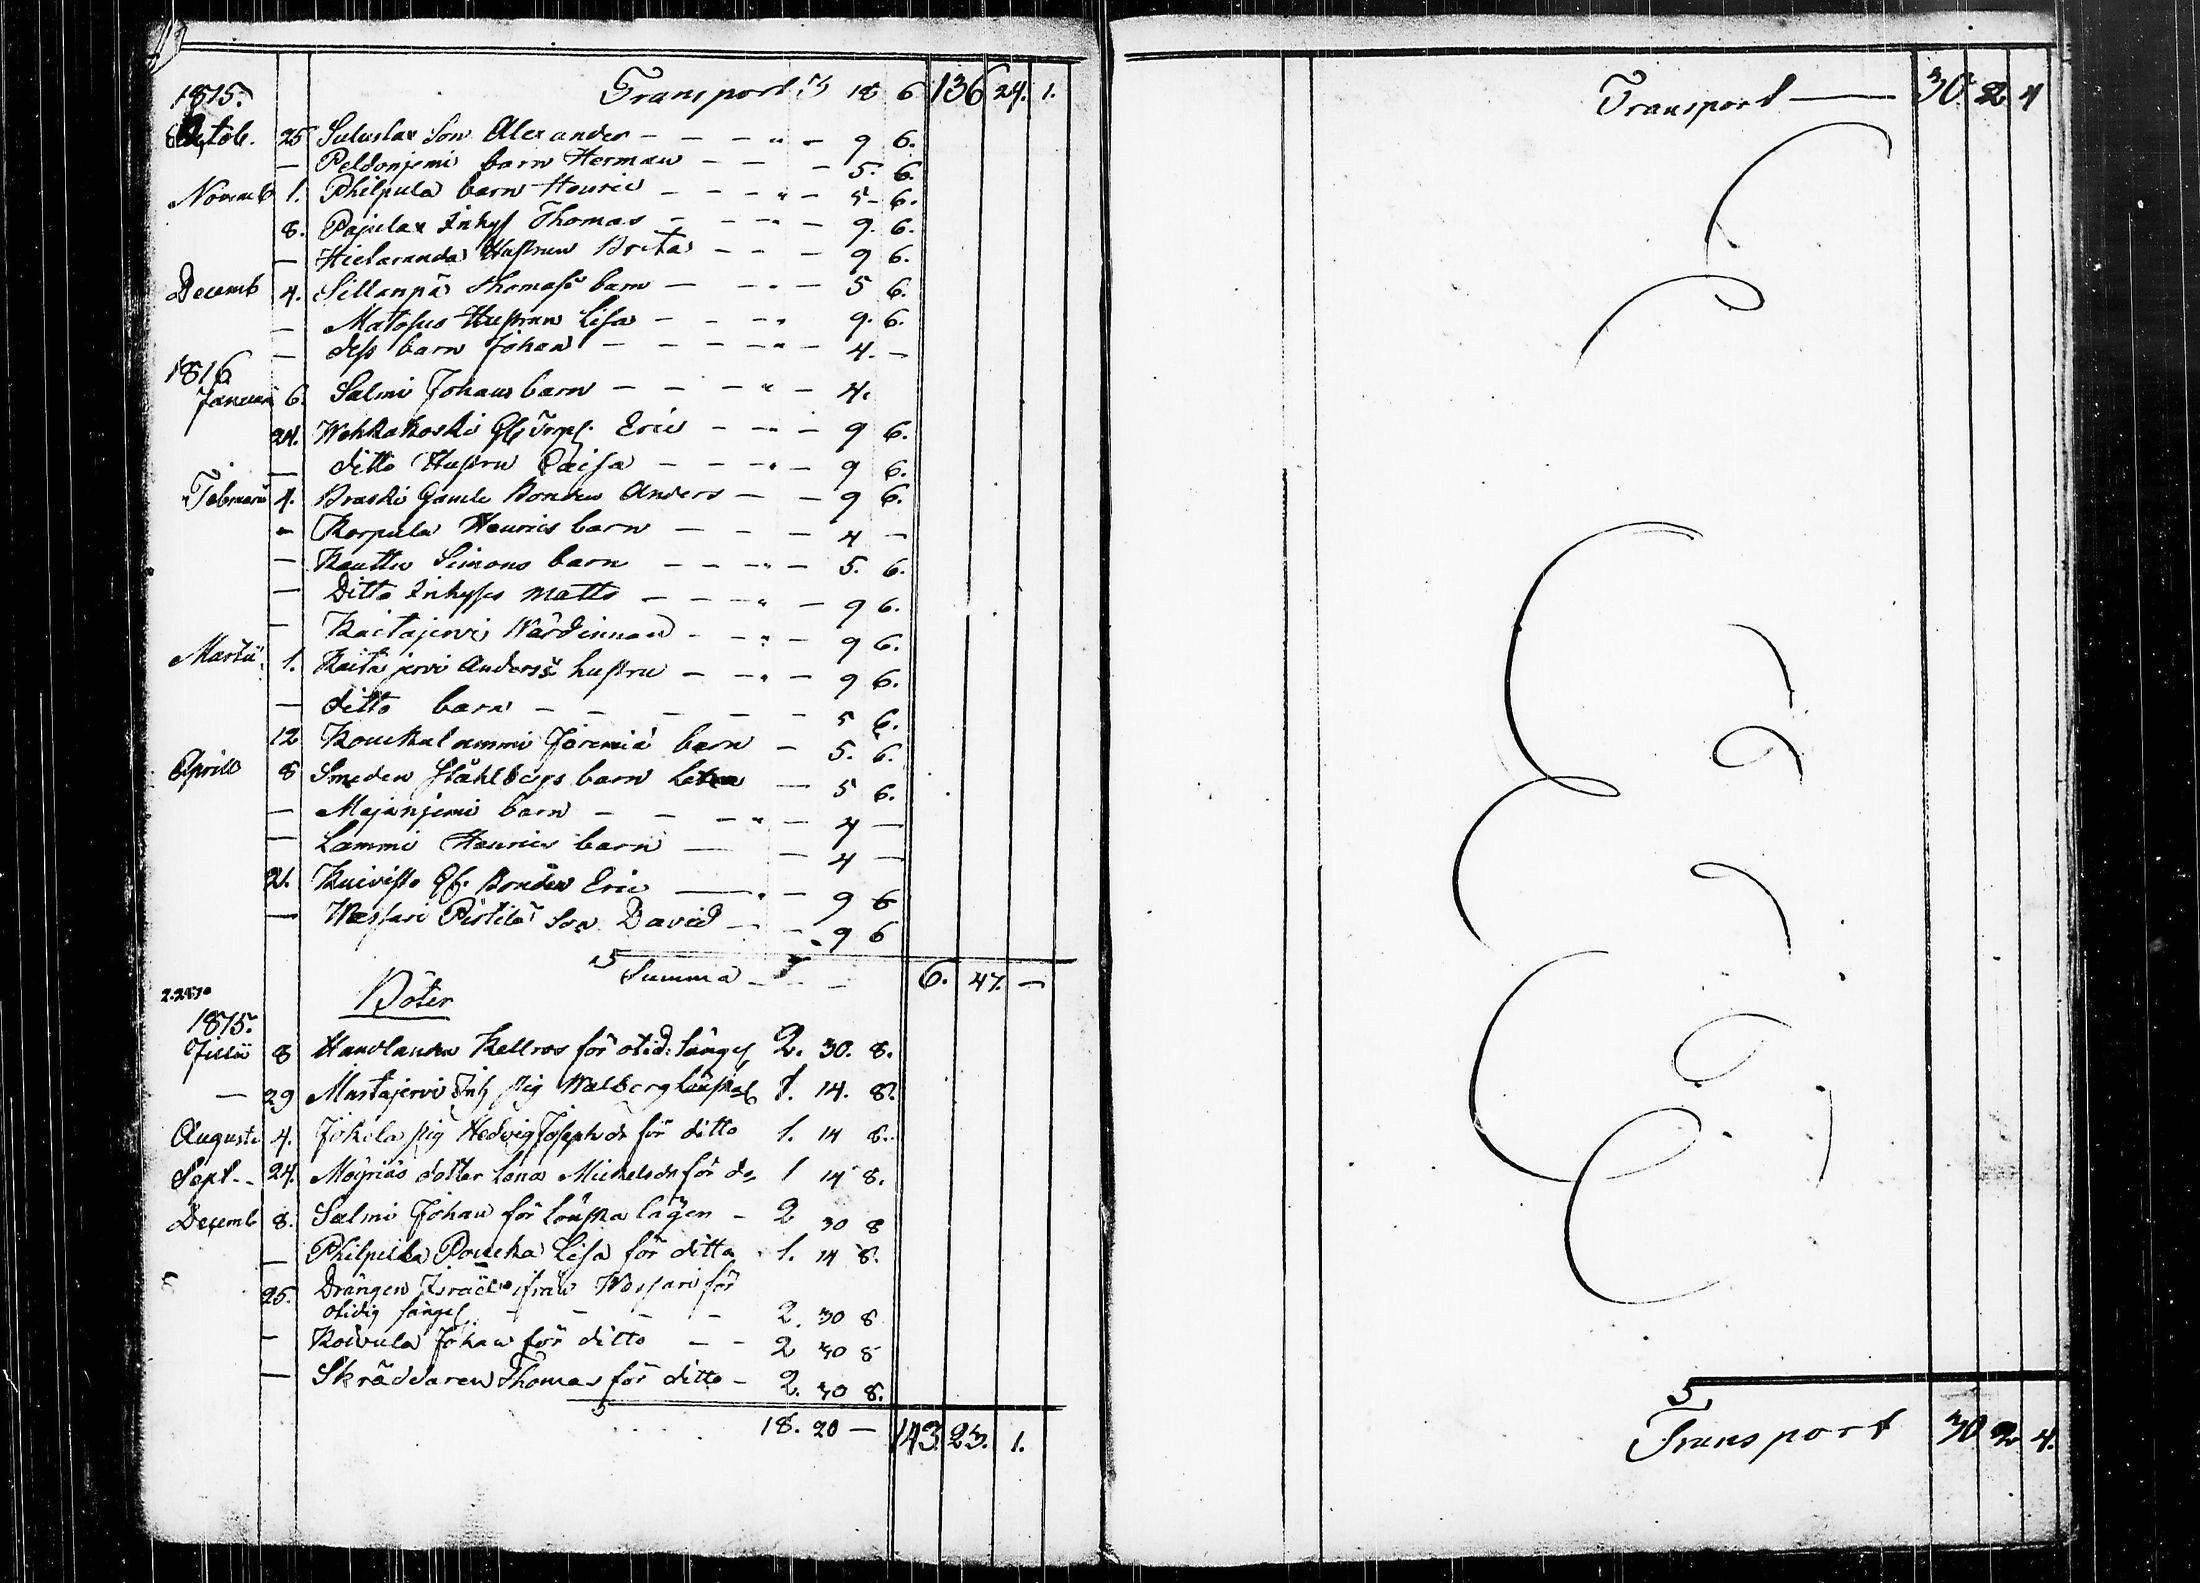 1815. Transport 18 6 136 24. 1.
Octob. 25 Suluslax Son Alexander - - - " - 9 6.
- Peldonjemi barn Herman - - - 5. 6.
Novemb 1. Philpula barn Henric - - - " - 5 - 6.
8. Pajulax Inhys Thomas - - - " - 9. 6.
- Hielaranda Hustrun Brita - - - 9 6.
Decemb 4. Sillanpä Thomas barn - - " - 5 6.
- Matosus Hustrun Lisa - - - " 9. 6.
- dess barn Johan - - - - " - 4. -
1816
Januari 6. Salmi Johans barn - - - " - 4.
24. Wehkakoski Torp. Eric - - " - 9 6.
- ditto Hustru Caisa - - - " - 9 6.
Februari 4. Braski Gamle Bonden Anders - - 9 6.
- Korpula Henrics barn - - - 4 -
- Kauttu Simons barn - - - " - 5. 6.
- Ditto Inhyses Matts - - - " - 9 6.
- Kaitajervi Wärdinnan - - " - 9 6.
Martii 1. Kaitajervi Anders hustru - - " - 9 6.
- ditto barn - - - - - 5 6.
12 Koukulammi Jeremia barn - 5. 6.
Aprill 8 Smeden Ståhlbergs barn - 5 6.
- Majanjemi barn - - - " - 4 -
- Lammi Henrics barn - - 4 -
21. Kuivisto Bonden Eric - " - 9 6
- Wessari Pistilä Son David - - 9 6
Summa - - - 6. 47. -
Böter
1815.
Julii 8 Handlanden Kellros för otid: sängel 2. 30. 8.
- 29 Mustajervi Inh pig Walborg 1. 14. 8.
Augusti 4. Jokela pig Hedvig Josephsdr för ditto 1. 14 8.
Sept - - 24. Möyriäs dotter Lena Michelsdr för do 1 14 8.
Decemb 8. Salmi Johan för löuska lägen - 2 30 8
- Philpula Pouka Lisa för ditto - 1. 14 8.
25. Drängen Israel ifrån Wessari för
otidig sängel. - - - - 2. 30 8
- Koivula Johan för ditto - - 2 30 8
- Skräddaren Thomas för ditto - 2. 30 8.
18. 20 - 143. 23. 1.
Transport — 30 2 4
Transport 30 2 4.